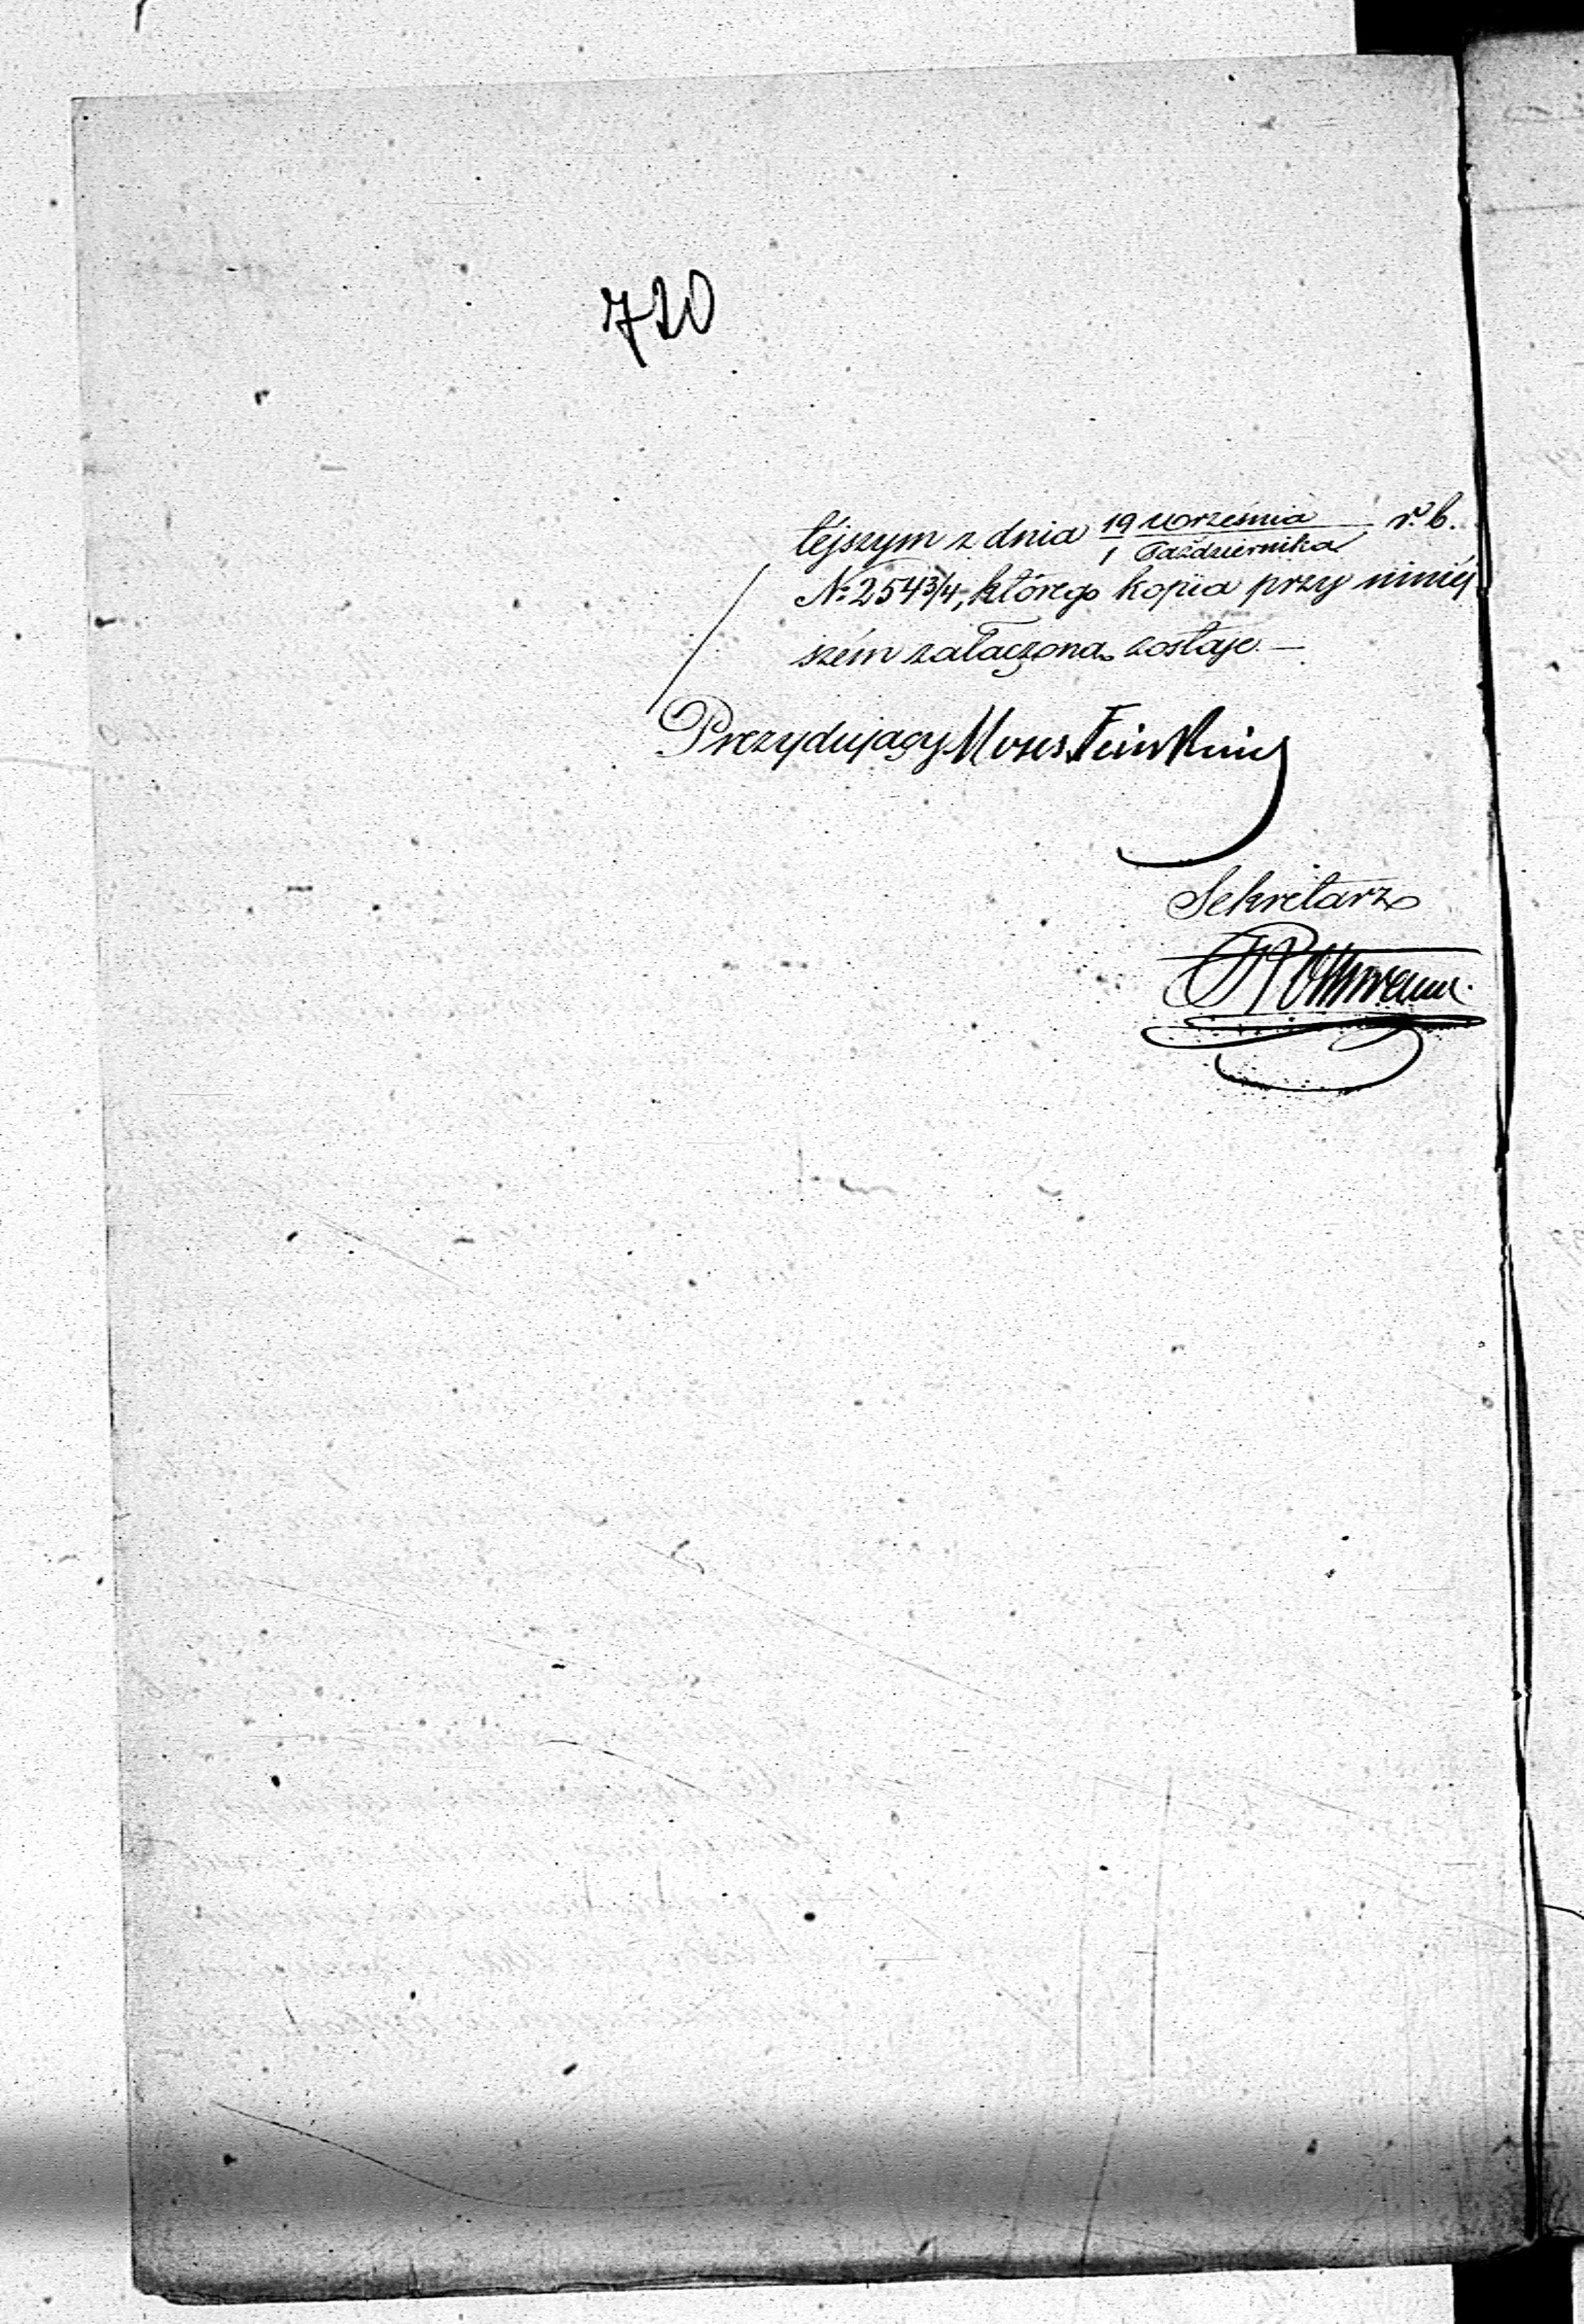 720
téjszym z dnia 19 Września / 1 Października r. b.
№ 2543/4, którego kopia przy niniéj
szém załączona zostaje. —
Prezydujący Moses Feinkind
Sekretarz